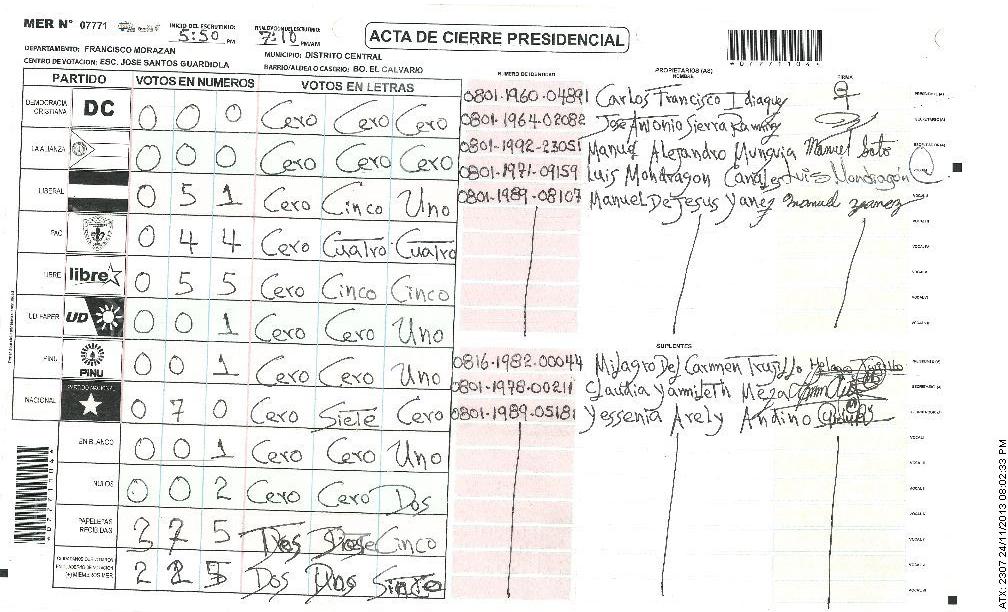 MER N° 07771
INICIO DEL ESCRUTINIO: 5:50 PM
7:10 PM/AM
ACTA DE CIERRE PRESIDENCIAL
DEPARTAMENTO: FRANCISCO MORAZAN
MUNICIPIO: DISTRITO CENTRAL
CENTRO DE VOTACION: ESC. JOSE SANTOS GUARDIOLA
BARRIO/ALDEA O CASERIO: BO. EL CALVARIO
PARTIDO VOTOS EN NUMEROS VOTOS EN LETRAS
NUMERO DE IDENTIDAD PROPIETARIOS (AS) NOMBRE FIRMA
DEMOCRACIA CRISTIANA DC 0 0 0 Cero Cero Cero
LA ALIANZA 0 0 0 Cero Cero Cero
LIBERAL 0 5 1 Cero Cinco Uno
PAC 0 4 4 Cero Cuatro Cuatro
LIBRE libre 0 5 5 Cero Cinco Cinco
UD FAPER UD 0 0 1 Cero Cero Uno
PINU PINU 0 0 1 Cero Cero Uno
NACIONAL PARTIDO NACIONAL 0 7 0 Cero Siete Cero
EN BLANCO 0 0 1 Cero Cero Uno
NULOS 0 0 2 Cero Cero Dos
PAPELETAS RECIBIDAS 7 5 Cinco
2 2 Dos Dos
0801-1960-04891 Carlos Francisco Idiaquez
0801-1964-02082 Jose Antonio Sierra Ramirez
0801-1992-23051 Manuel Alejandro Munguia Manuel Soto
0801-1971-09159 Luis Mondragon Canales Luis Mondragón
0801-1989-08107 Manuel De Jesus Yanez manuel yanez
SUPLENTES
0816-1982-00044 Milagro Del Carmen Trujillo
0801-1978-00211 Claudia Yamileth Meza
0801-1989-05181 Yessenia Arely Andino
ATX: 2307 24/11/2013 08:02:33 PM